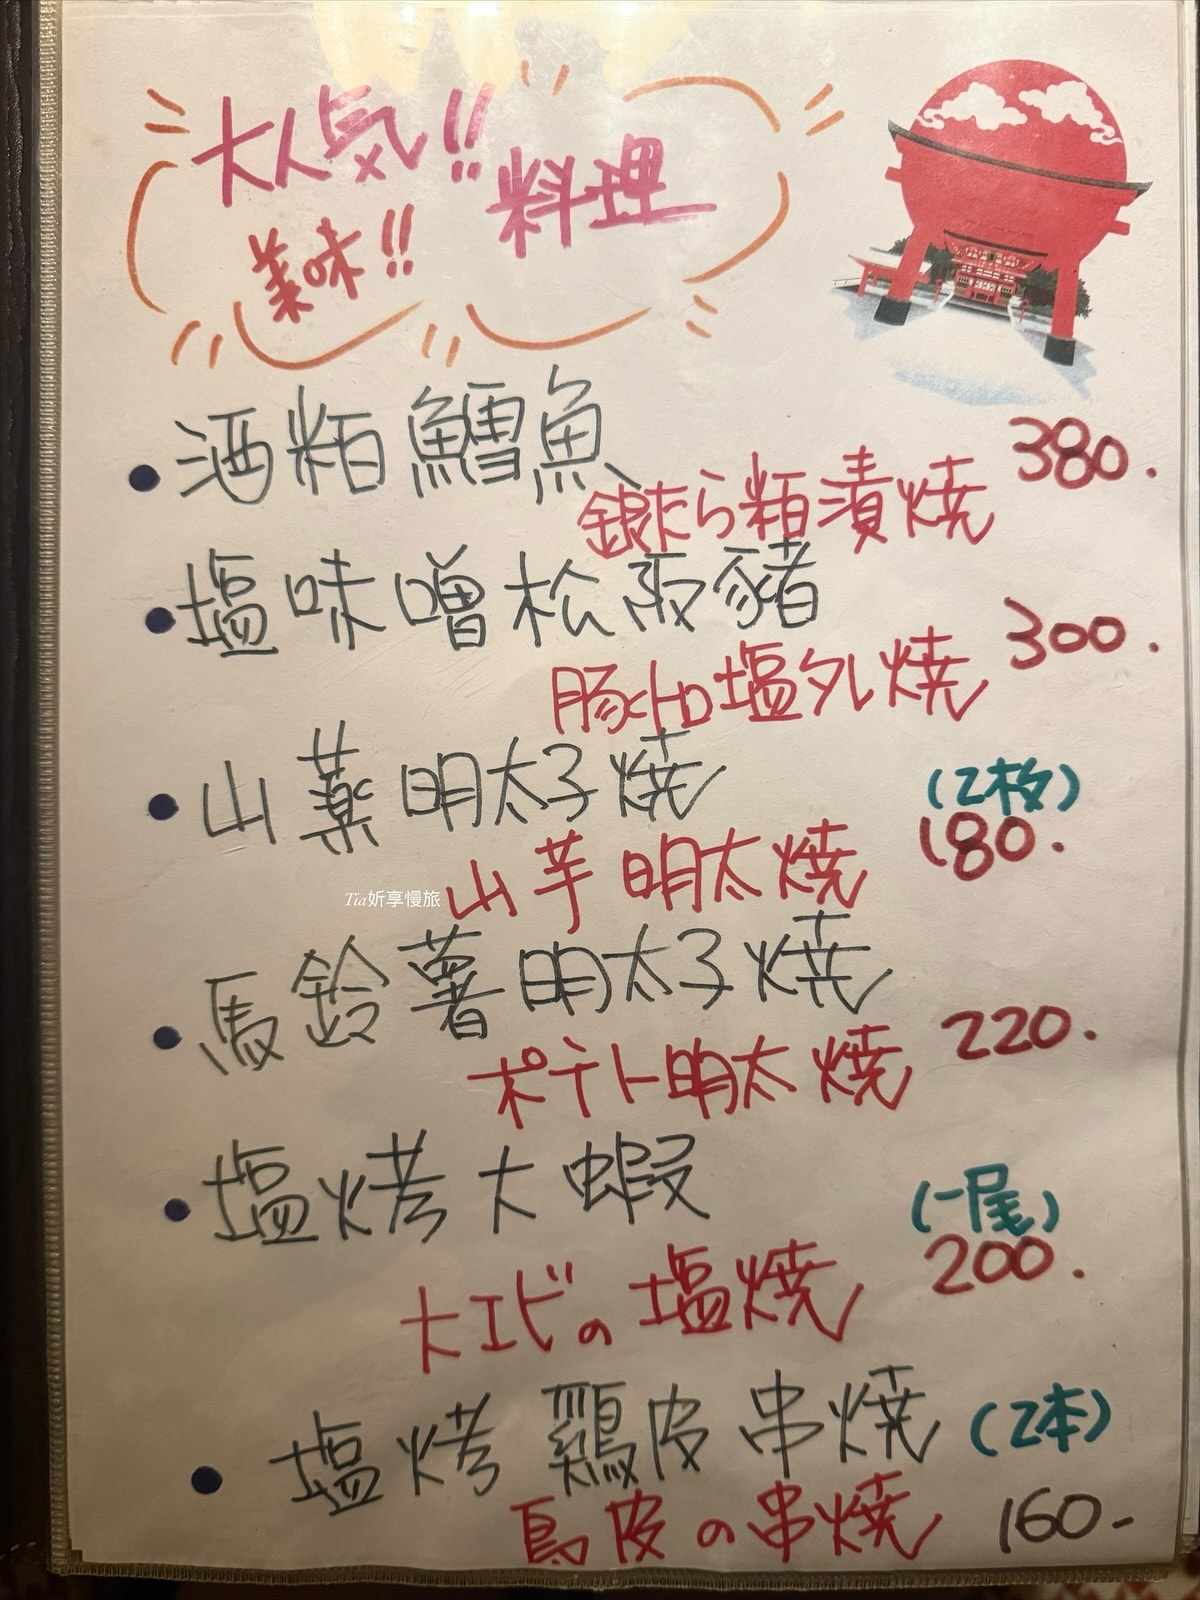 大人気!! 料理
美味!!
酒粕鱈魚 380.
銀たら粕漬焼
塩味噌松阪豬 300.
豚トロ塩タレ焼
山薬明太子焼 (2枚)
山芋明太焼 180.
Tia妡享慢旅
馬鈴薯明太子焼
ポテト明太焼 220.
塩烤大蝦 (一尾)
大エビの塩焼 200.
塩烤鶏皮串焼 (2本)
鳥皮の串焼 160-